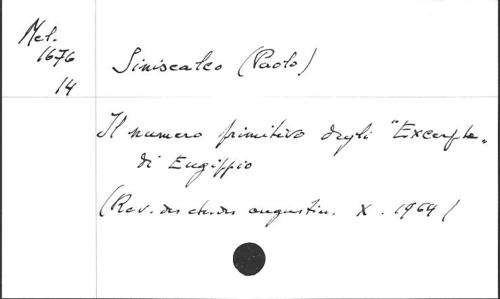 Mel.
1676
14
Siniscalco (Paolo)
Il numero primitivo degli "Excerpta"
di Eugippio
(Rev. des études augustin. X. 1964)